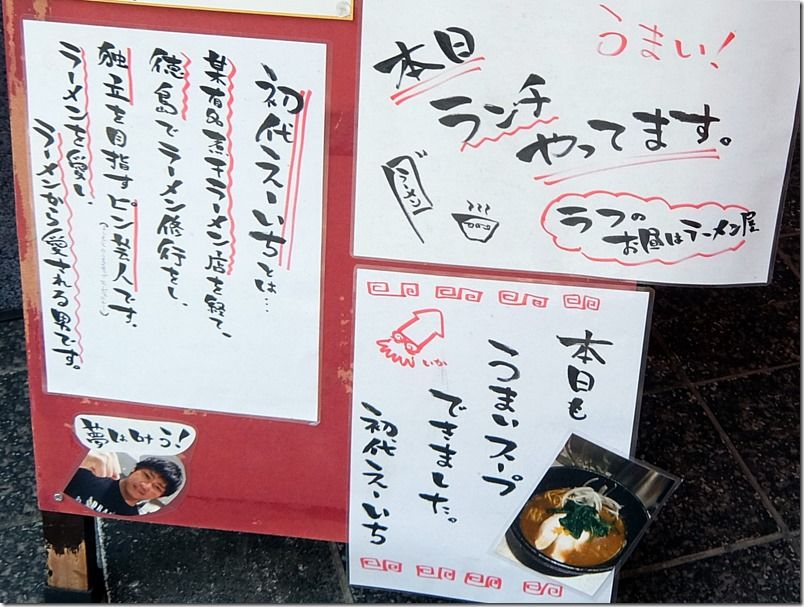 うまい!
本日
ランチ
やってます。
ラーメン
ラフの
お昼はラーメン屋
初代えーいちとは…
某有名煮干ラーメン店を経て、
徳島でラーメン修行をし、
独立を目指すピン芸人です。
ラーメンを愛し、
ラーメンから愛される男です。
夢は叶う!
本日も
うまいスープ
できました。
初代えーいち
いか